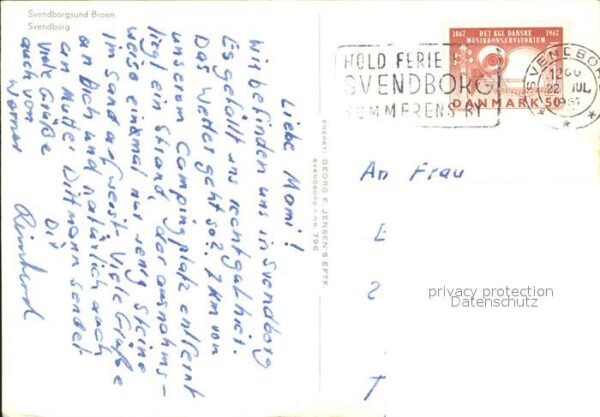 Svendborgsund Broen
Svendborg
Liebe Mami!
Wir befinden uns in Svendborg
Es gefällt uns recht gut hier.
Das Wetter geht so. 7 km von
unserem Campingplatz entfernt
liegt ein Strand, der ausnahms-
weise einmal nur wenig Steine
im Sand aufweist. Viele Grüße
an Dich und natürlich auch
an Mutte Dittmann sendet
Dir
Reinhard
viele Grüße
auch von
Werner
ENERET: GEORG E. JENSEN'S EFTF.
SVENDBORG - NR. 796
HOLD FERIE I
SVENDBORG
SOMMERENS BY
1867 DET KGL DANSKE 1967
MUSIKKONSERVATORIUM
DANMARK 50
SVENDBORG
1200
22 JUL
1967
An Frau
E
2
T
privacy protection
Datenschutz